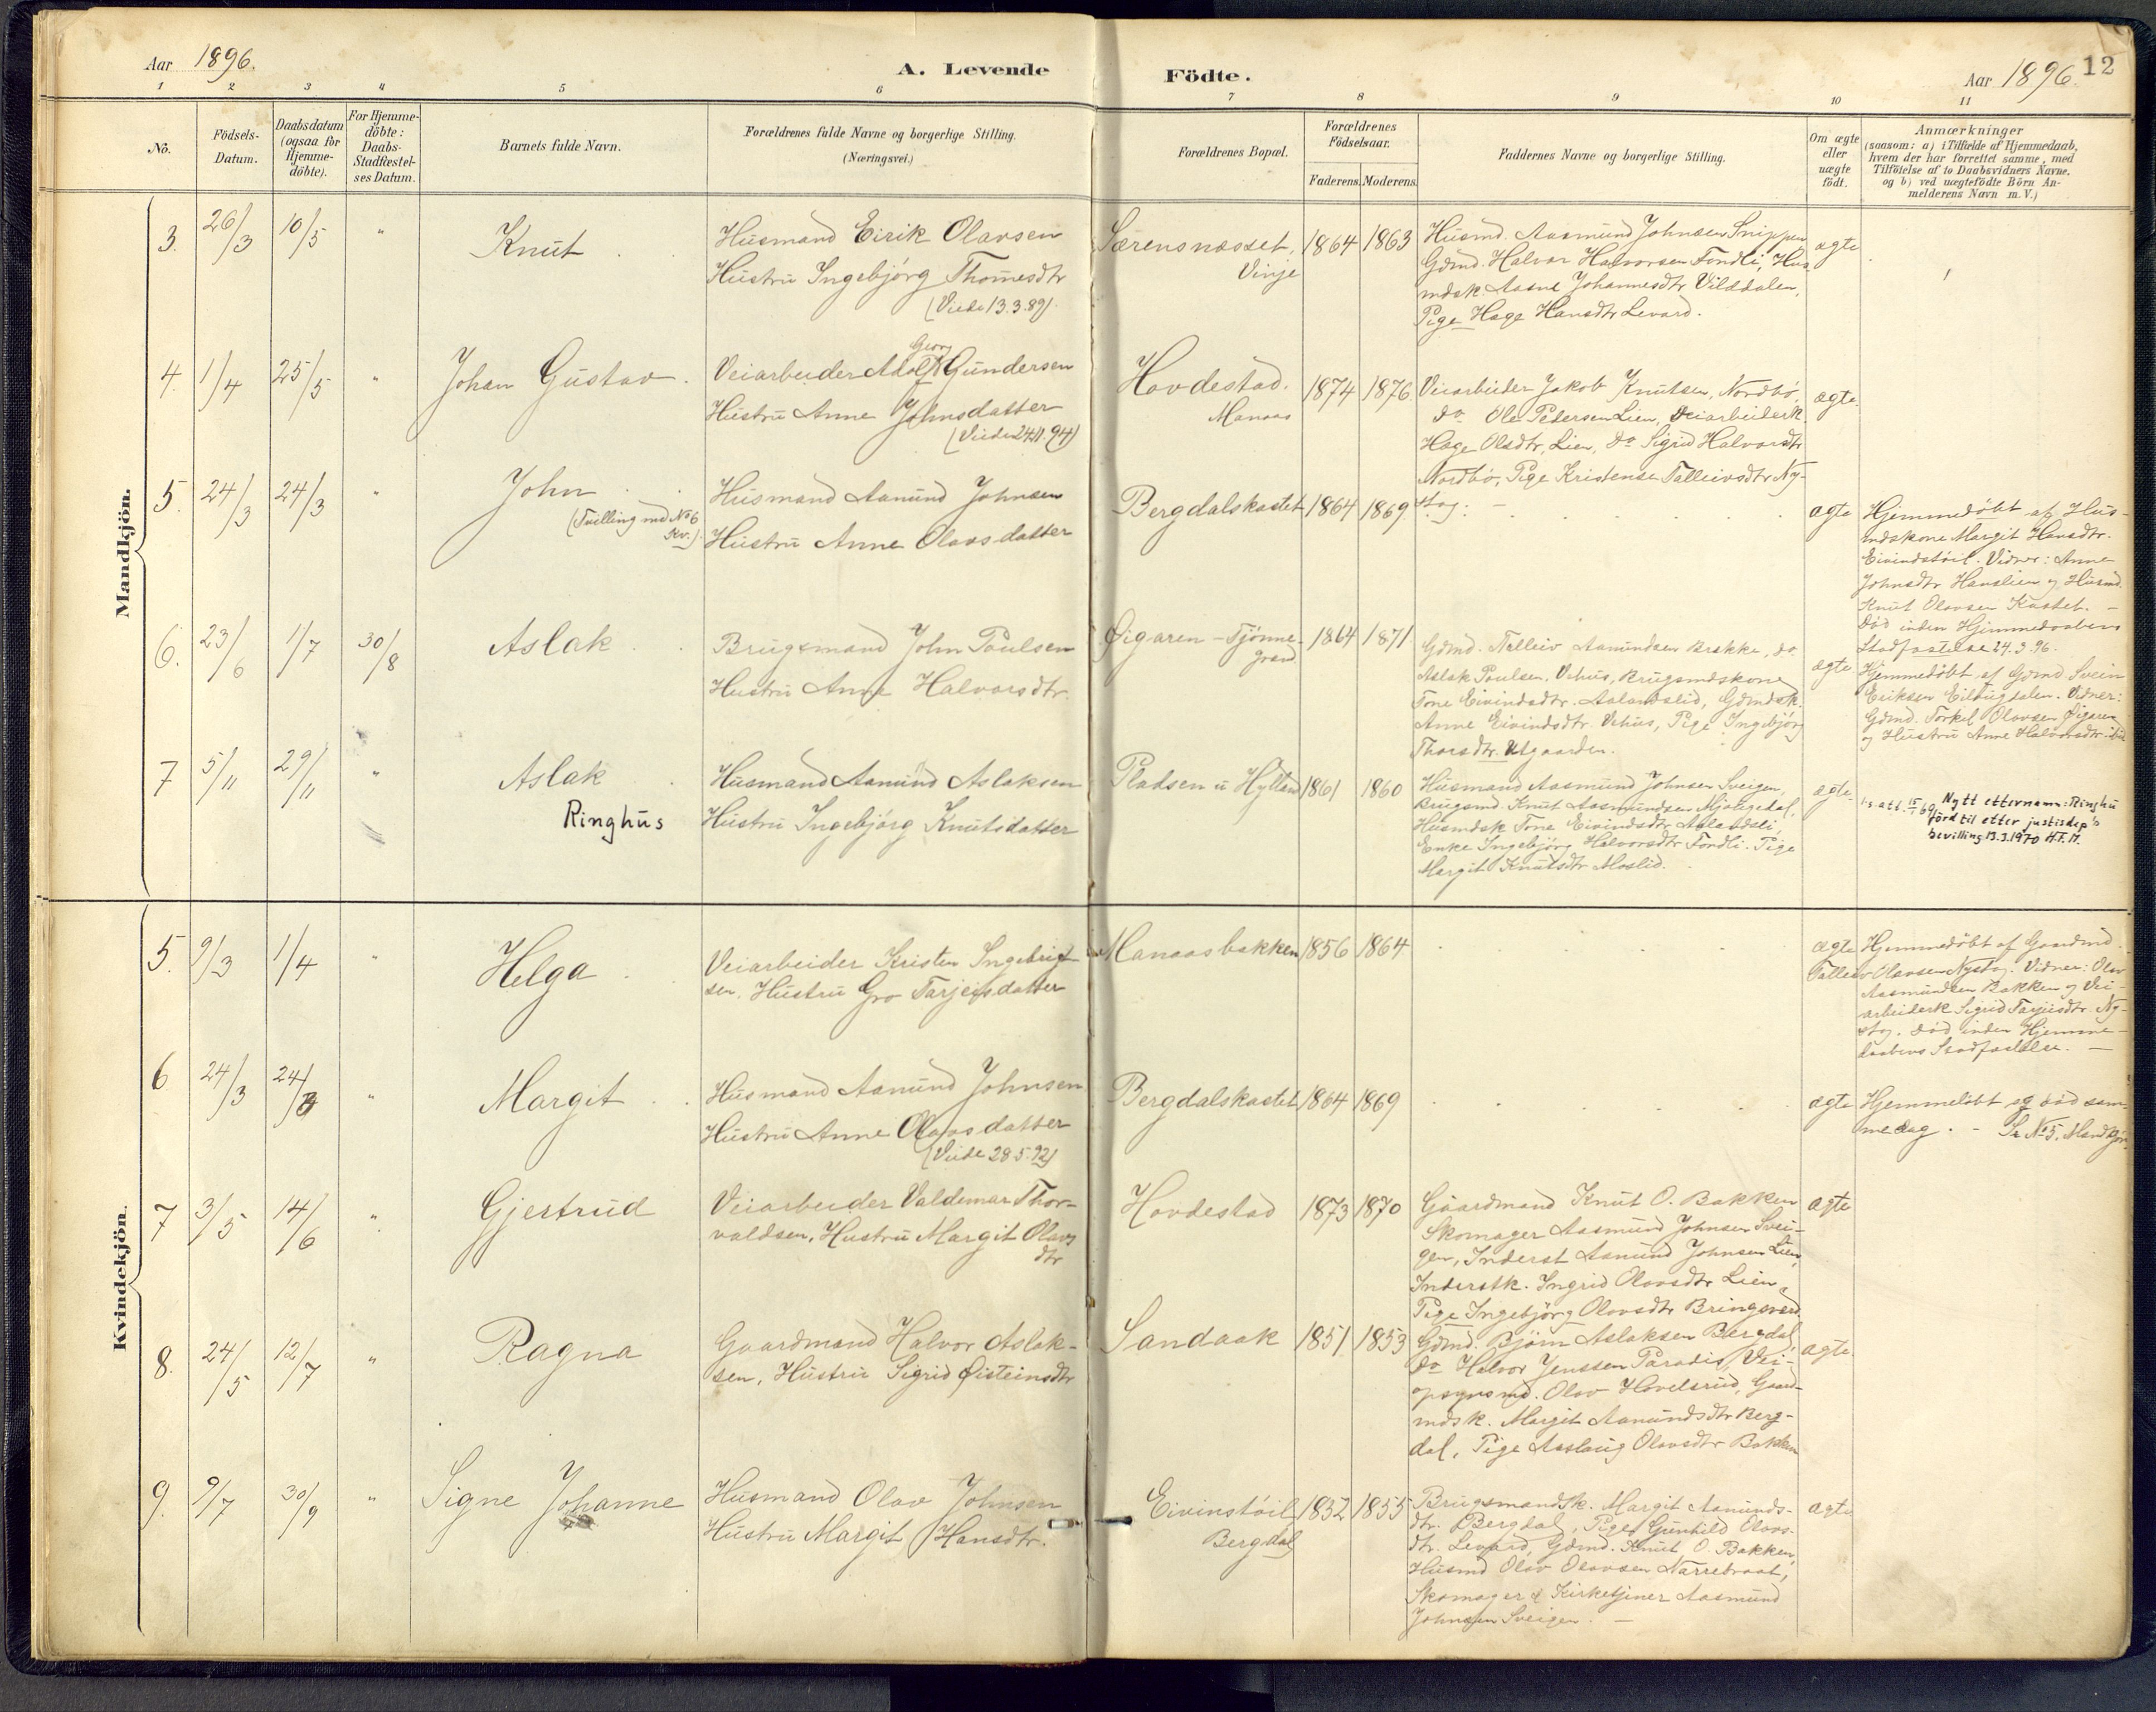 Aar 1896.
A. Levende Födte.
Aar 1896. 12
1 2 3 4 5 6 7 8 9 10 11
No.
Födsels-
Datum.
Daabsdatum
(ogsaa for
Hjemme-
döbte).
For Hjemme-
döbte:
Daabs-
Stadfæstel-
ses Datum.
Barnets fulde Navn.
Forældrenes fulde Navne og borgerlige Stilling.
(Næringsvei.)
Forældrenes Bopæl.
Forældrenes
Födselsaar.
Faderens. Moderens.
Faddernes Navne og borgerlige Stilling.
Om ægte
eller
uægte
födt.
Anmærkninger
(saasom: a) i Tilfælde af Hjemmedaab,
hvem der har forrettet samme, med
Tilföielse af to Daabsvidners Navne,
og b) ved uægtefödte Börn An-
melderens Navn m. V.)
Mandkjön.
3. 26/3 10/5 " Knut
Husmand Eirik Olavsen
Hustru Ingebjörg Thomesdtr
(Viede 13.3.89).
Særensnæsset,
Vinje
1864 1863
Husmd. Aasmund Johnsen Snippen
Gdmd. Halvor Halvorsen Fondli, Hus-
mdsk. Aasne Johannesdtr Vilddalen,
Pige Hæge Hansdtr Levard.
ægte
4. 1/4 25/5 " Johan Gustav.
Georg
Veiarbeider Adolf Gundersen
Hustru Anne Johnsdatter
(Viede 24.11.94)
Hovdestad.
Manaas
1874 1876.
Veiarbeider Jakob Knutsen, Nordbö,
do Ole Pedersen Lien, Veiarbeiderk.
Hæge Olsdtr, Lien, do Sigrid Halvorsdtr
Nordbö, Pige Kristense Talleivsdtr Ny-
stog.
ægte.
5. 24/3 24/3 " John
(Tvilling med No 6
Kv.)
Husmand Aanund Johnsen
Hustru Anne Olavsdatter
Bergdalskastet 1864 1869
ægte
Hjemmedöbt af Hus-
mdskone Margit Hansdtr.
Eivindstöil. Vidner: Anne
Johnsdtr Hanslien og Husmd.
Knut Olavsen Kastet. –
Död inden Hjemmedaabens
Stadfæstelse 24.3.96.
6. 23/6 1/7 30/8 Aslak
Brugsmand John Poulsen
Hustru Anne Halvorsdtr.
Øigaren – Tjönne-
grend
1864 1871
Gdmd. Talleiv Aanundsen Brække, do
Aslak Poulsen, Vehus, Brugsmdskone
Tone Eivindsdtr. Aslandslid, Gdmdsk.
Anne Eivindsdtr. Vehus, Pige Ingebjörg
Thorsdtr. Utgaarden.
ægte
Hjemmedöbt af Gdmd Svein
Eriksen Eilaugdalen. Vidner:
Gdmd. Torkel Olavsen Øigaren
og Hustru Anne Halvorsdtr ibid
7 5/11 29/11 " Aslak
Ringhus
Husmand Aanund Aslaksen
Hustru Ingebjörg Knutsdatter
Pladsen u Hylland 1861 1860
Husmand Aasmund Johnsen Sveigen,
Brugsmd. Knut Aasmundsen Mjaugedal,
Husmdsk Tone Eivindsdtr Aslandsli,
Enke Ingebjörg Halvorsdtr Fondli. Pige
Margit Knutsdtr Moslid.
ægte.
Nytt etternamn: Ringhus
förd til etter justisdep's
bevilling 13.3.1970 H.F.M.
Kvindekjön.
5. 9/3 1/4 " Helga
Veiarbeider Kristen Ingebrigt-
sen, Hustru Gro Tarjeisdatter
Manaasbakken 1856 1864
ægte
Hjemmedöbt af Gaardmd
Talleiv Olavsen Nystog. Vidner: Olav
Aasmundsen Bakken og Vei-
arbeiderk Sigrid Tarjeisdtr Ny-
stog. Död inden Hjemme-
daabens Stadfæstelse. –
6 24/3 24/3 " Margit
Husmand Aanund Johnsen
Hustru Anne Olavsdatter
(Viede 28.5.92)
Bergdalskastet 1864 1869
ægte
Hjemmedöbt og död sam-
me Dag. – Se No 5, Mandkjön.
7 3/5 14/6 " Gjertrud
Veiarbeider Valdemar Thor-
valdsen, Hustru Margit Olavs
dtr
Hovdestad 1873 1870
Gaardmand Knut O. Bakken
Skomager Aasmund Johnsen Svei-
gen, Inderst Aanund Johnsen Lien,
Inderstk. Ingrid Olavsdtr Lien,
Pige Ingebjörg Olavsdtr Bringsverd
ægte
8. 24/5 12/7 " Ragna
Gaardmand Halvor Aslak-
sen, Hustru Sigrid Øisteinsdtr
Sandaak 1851 1853
Gdmd. Björn Aslaksen Bergdal,
do Halvor Jenssen Paradis, Vei-
opsynsmd. Olav Hovelsrud, Gaard-
mdsk. Margit Aanundsdtr Berg-
dal, Pige Aaslaug Olavsdtr Bakken
ægte.
9. 9/7 30/9 " Signe Johanne
Husmand Olav Johnsen
Hustru Margit Hansdtr.
Eivinstöil,
Bergdal
1852 1855
Brugsmandsk. Margit Aanunds-
dtr. Bergdal, Pige Gunhild Olavs-
dtr. Levard, Gdmd. Knut O. Bakken,
Husmd Olav Olavsen Narrebraat,
Skomager & Kirketjener Aasmund
Johnsen Sveigen. –
ægte